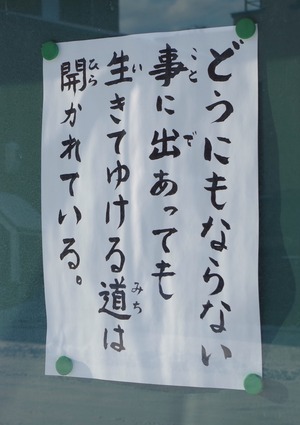 どうにもならない
事に出あっても
生きてゆける道は
開かれている。